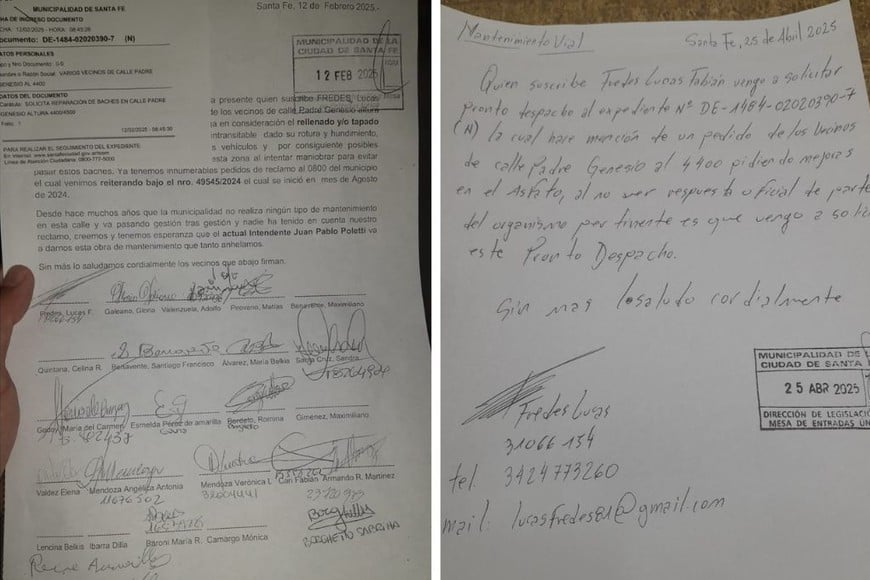 MUNICIPALIDAD DE SANTA FE
HA DE INGRESO DOCUMENTO
CHA: 12/02/2025 - HORA: 08:45:28
Documento: DE-1484-02020390-7 (N)
DATOS PERSONALES
Apellidos o Razon Social: VARIOS VECINOS DE CALLE PADRE
GENESIO AL 4400
DATOS DEL DOCUMENTO
Caratula: SOLICITA REPARACIÓN DE BACHES EN CALLE PADRE
GENESIO ALTURA 4400/4500
12/02/2025 - 08:45:30
PARA REALIZAR EL SEGUIMIENTO DEL EXPEDIENTE:
Línea de Atención Ciudadana: 0800-777-5000
Santa Fe, 12 de Febrero 2025.-
MUNICIPALIDAD DE LA
CIUDAD DE SANTA FE
12 FEB 2025
a presente quien suscribe FREDES, Lucas
te los vecinos de calle Padre Genesio altura
a en consideración el rellenado y/o tapado
intransitable dado su rotura y hundimiento,
s vehículos y por consiguiente posibles
esta zona al intentar maniobrar para evitar
pasar estos baches. Ya tenemos innumerables pedidos de reclamo al 0800 del municipio
el cual venimos reiterando bajo el nro. 49545/2024 el cual se inició en mes de Agosto
de 2024.
Desde hace muchos años que la municipalidad no realiza ningún tipo de mantenimiento
en esta calle y va pasando gestión tras gestión y nadie ha tenido en cuenta nuestro
reclamo, creemos y tenemos esperanza que el actual Intendente Juan Pablo Poletti va
a darnos esta obra de mantenimiento que tanto anhelamos.
Sin más lo saludamos cordialmente los vecinos que abajo firman:
Fredes, Lucas F. Galeano, Gloria Valenzuela, Adolfo Peireno, Matías Benavente, Maximiliano
Quintana, Celina R. Benavente, Santiago Francisco Álvarez, María Belkis Santa Cruz, Sandra
18264904
Godoy, María del Carmen Esmelda Pérez de amarilla Borgetto, Romina Giménez, Maximiliano
Valdez Elena Mendoza Angélica Antonia Mendoza Verónica I. Cari Fabián Armando R. Martinez
11676502 32004441
Lencina Belkis Ibarra Dilla Baroni María R. Camargo Mónica BORGHETTO SABRINA
Mantenimiento Vial
Santa Fe, 25 de Abril 2025
Quien suscribe Fredes Lucas Fabian vengo a solicitar
pronto despacho al expediente N° DE-1484-02020390-7
(N) la cual hace mención de un pedido de los vecinos
de calle Padre Genesio al 4400 pidiendo mejoras
en el Asfalto, al no ver respuesta oficial de parte
del organismo pertinente es que vengo a solicitar
este Pronto Despacho.
Sin mas lo saludo cordialmente
MUNICIPALIDAD DE L
CIUDAD DE SANTA
25 ABR 2025
DIRECCIÓN DE LEGISLACI
MESA DE ENTRADAS UN
Fredes Lucas
31066154
tel. 3424773260
mail: lucasfredes81@gmail.com